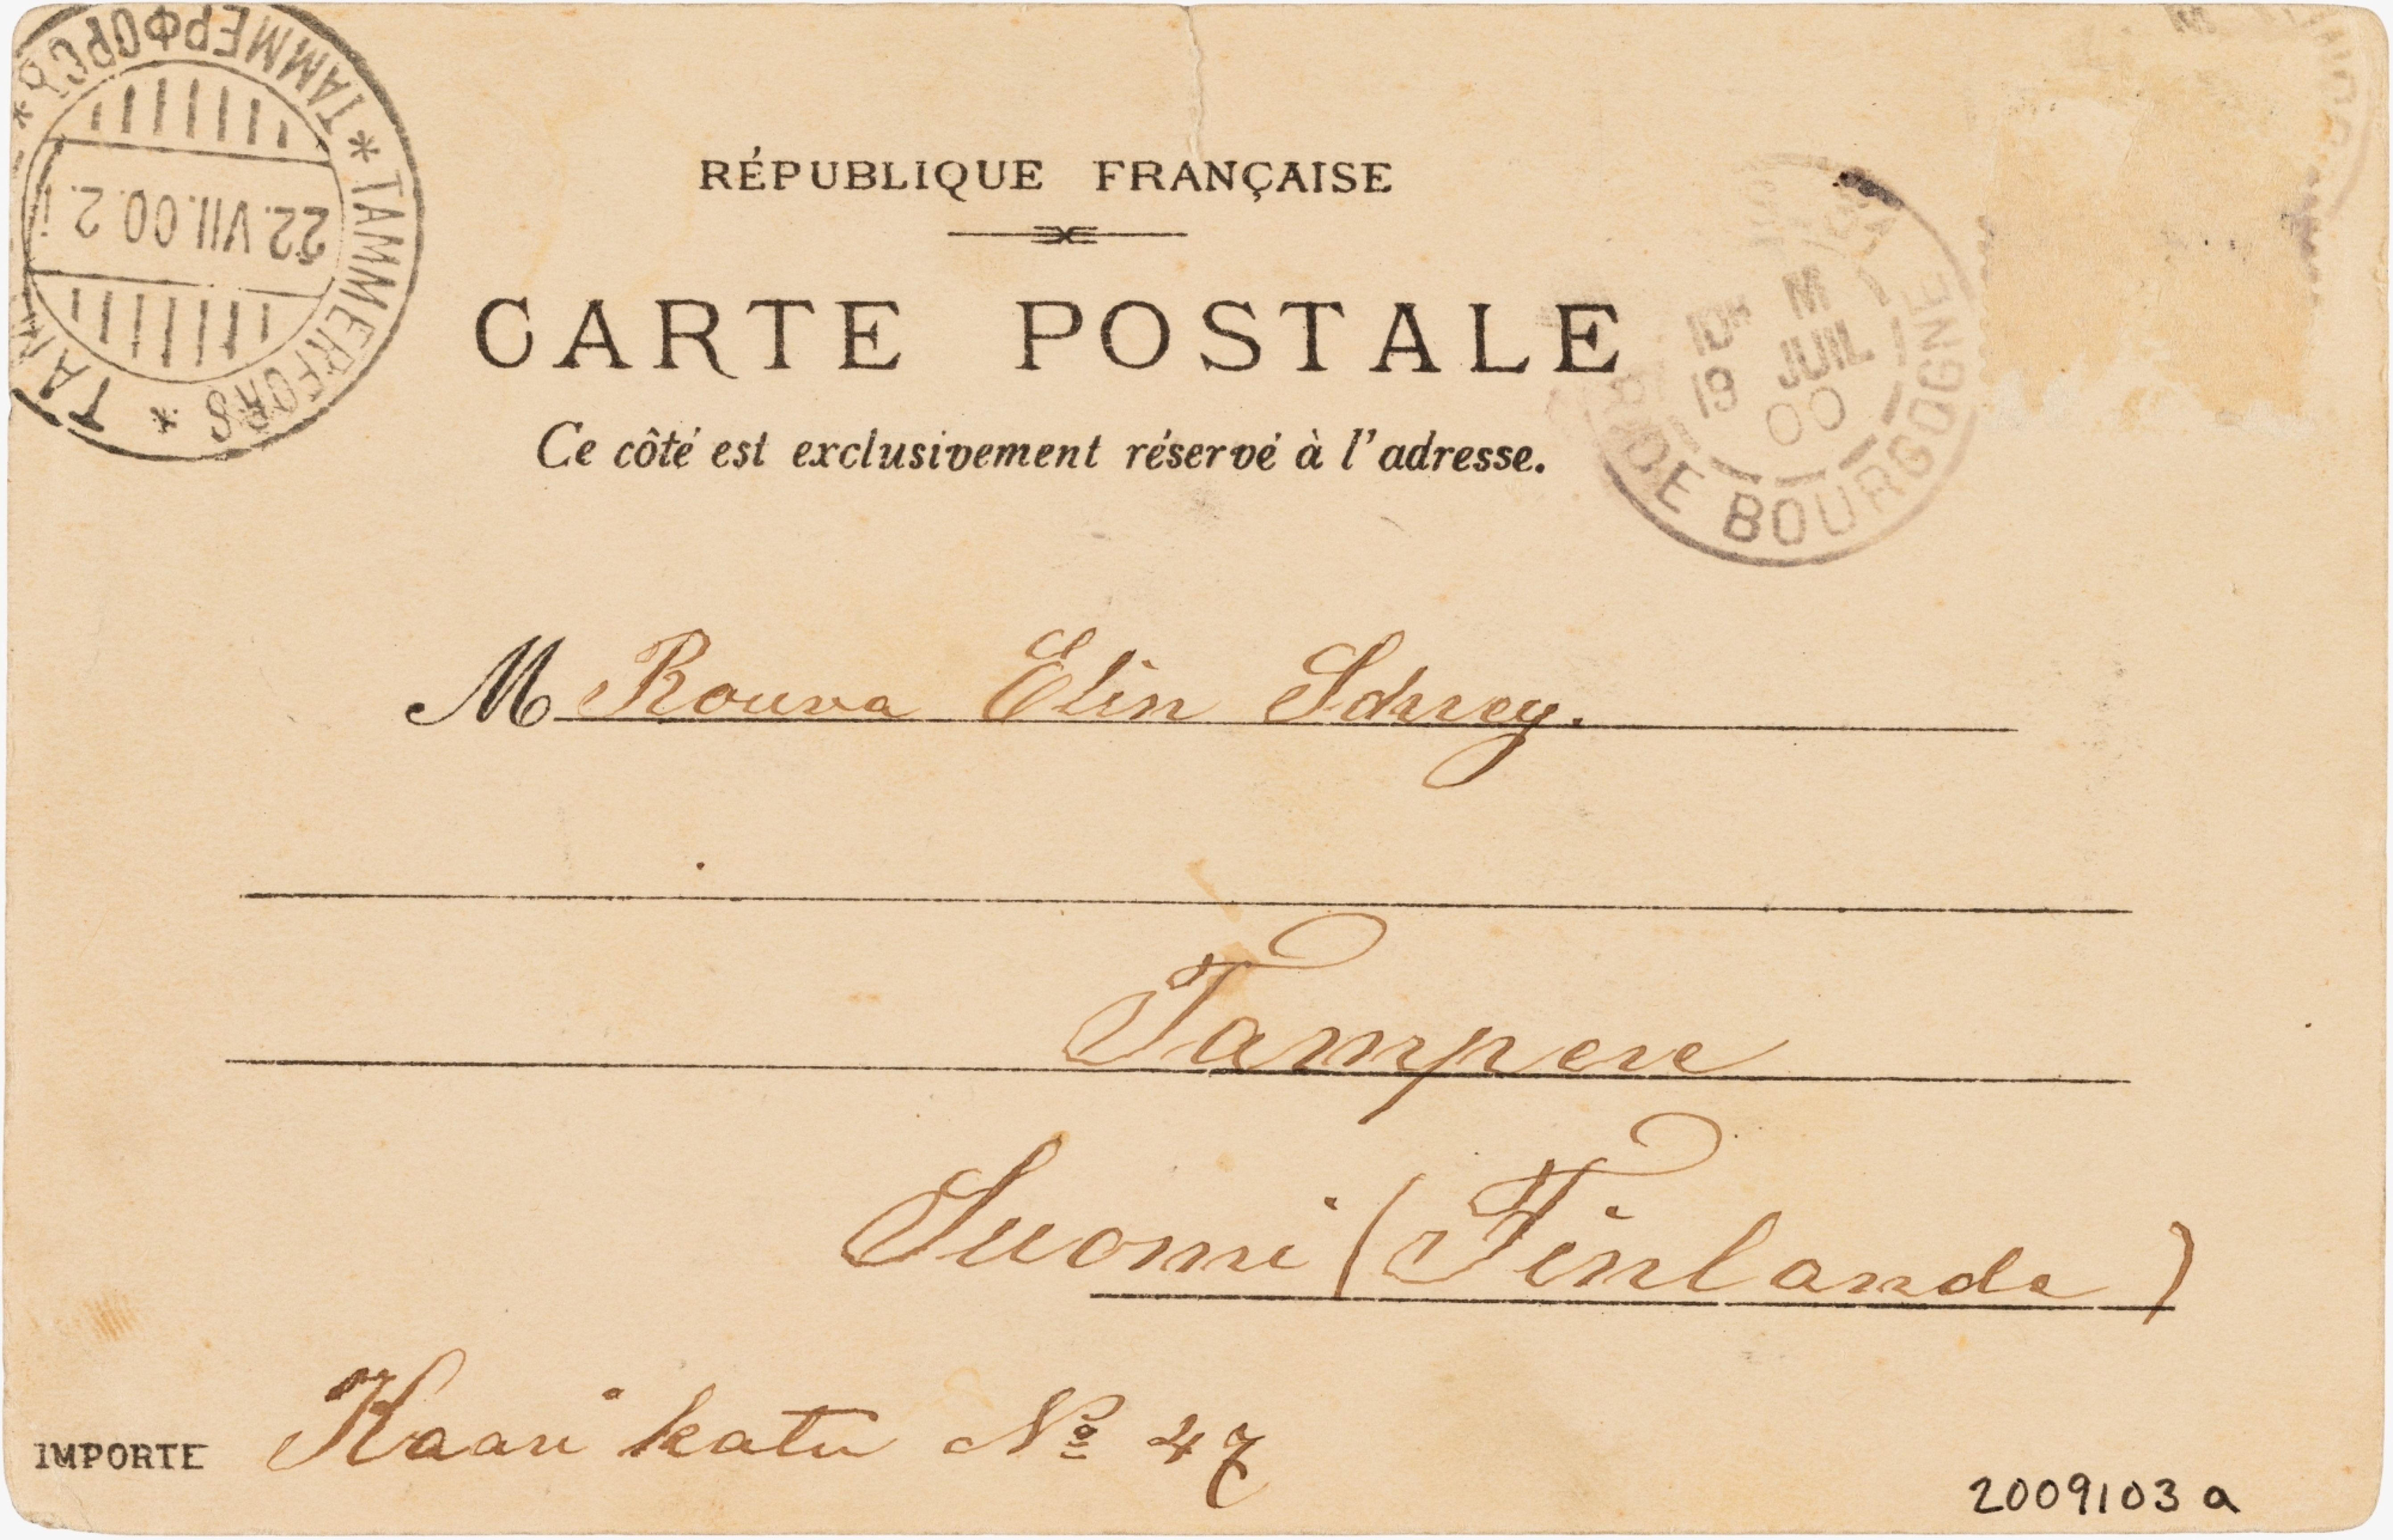 RÉPUBLIQUE FRANÇAISE
CARTE POSTALE
Ce côté est exclusivement réservé à l'adresse.
* ТАММЕРФОРСЪ * TAMMERFORS * TAM
22.VII.00.2.
10H M
19 JUIL
00
R. DE BOURGOGNE
M Rouva Elin
Tampere
Suomi (Finlande)
IMPORTE Kaari katu Nº 47
2009103 a